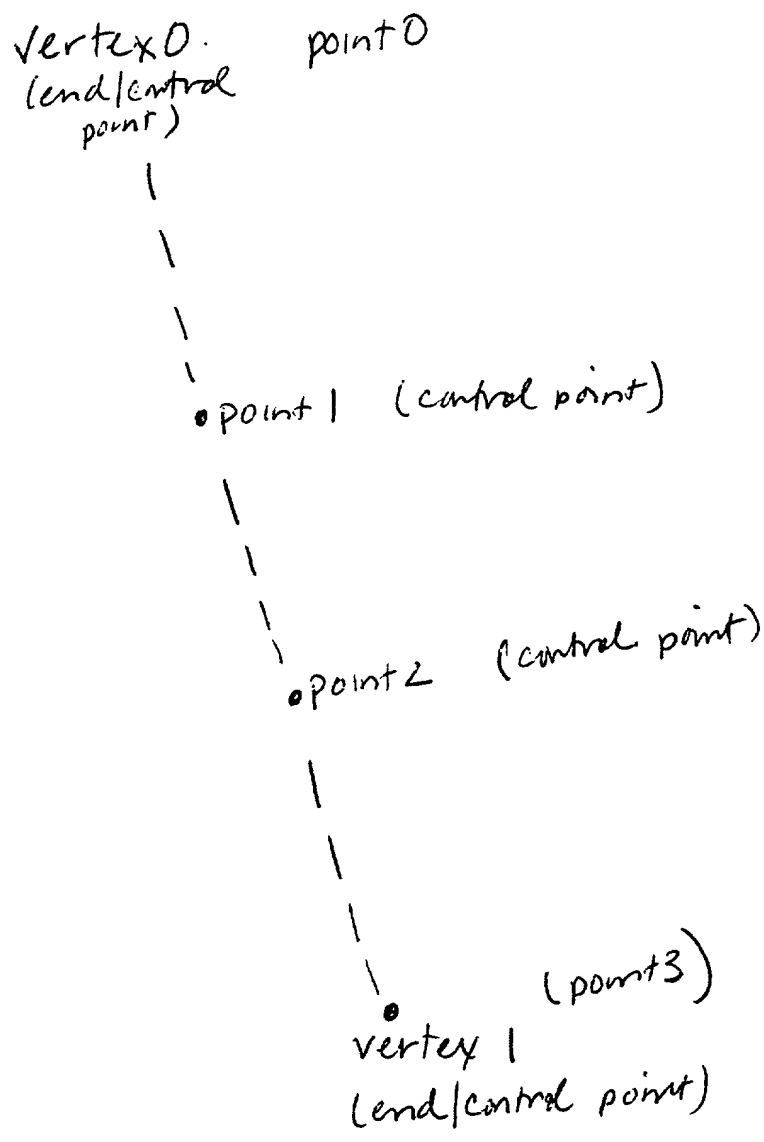 vertex0. point0
(end/control
point)
point1 (control point)
point2 (control point)
(point3)
vertex 1
(end/control point)